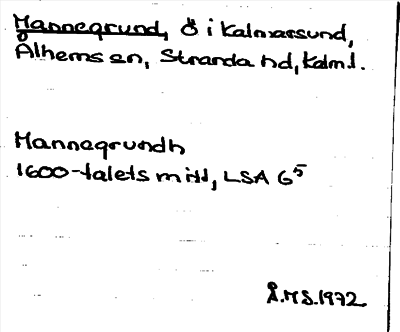 Mannegrund, Ö i Kalmarsund,
Ålhems sn, Stranda hd, Kalm l.
Mannegrundh
1600-talets mitt, LSA G⁵
Å.M.S. 1972